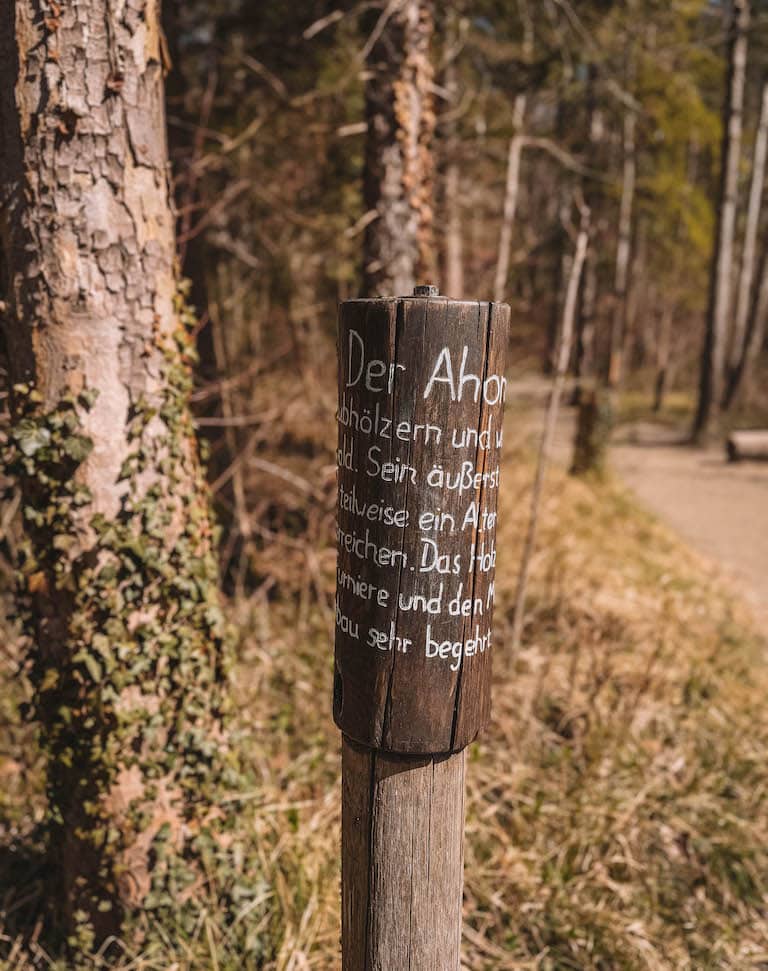 Der Ahor
ubhölzern und
ald. Sein äußerst
teilweise ein Alter
rreichen. Das Hol
urniere und den M
bau sehr begehrt